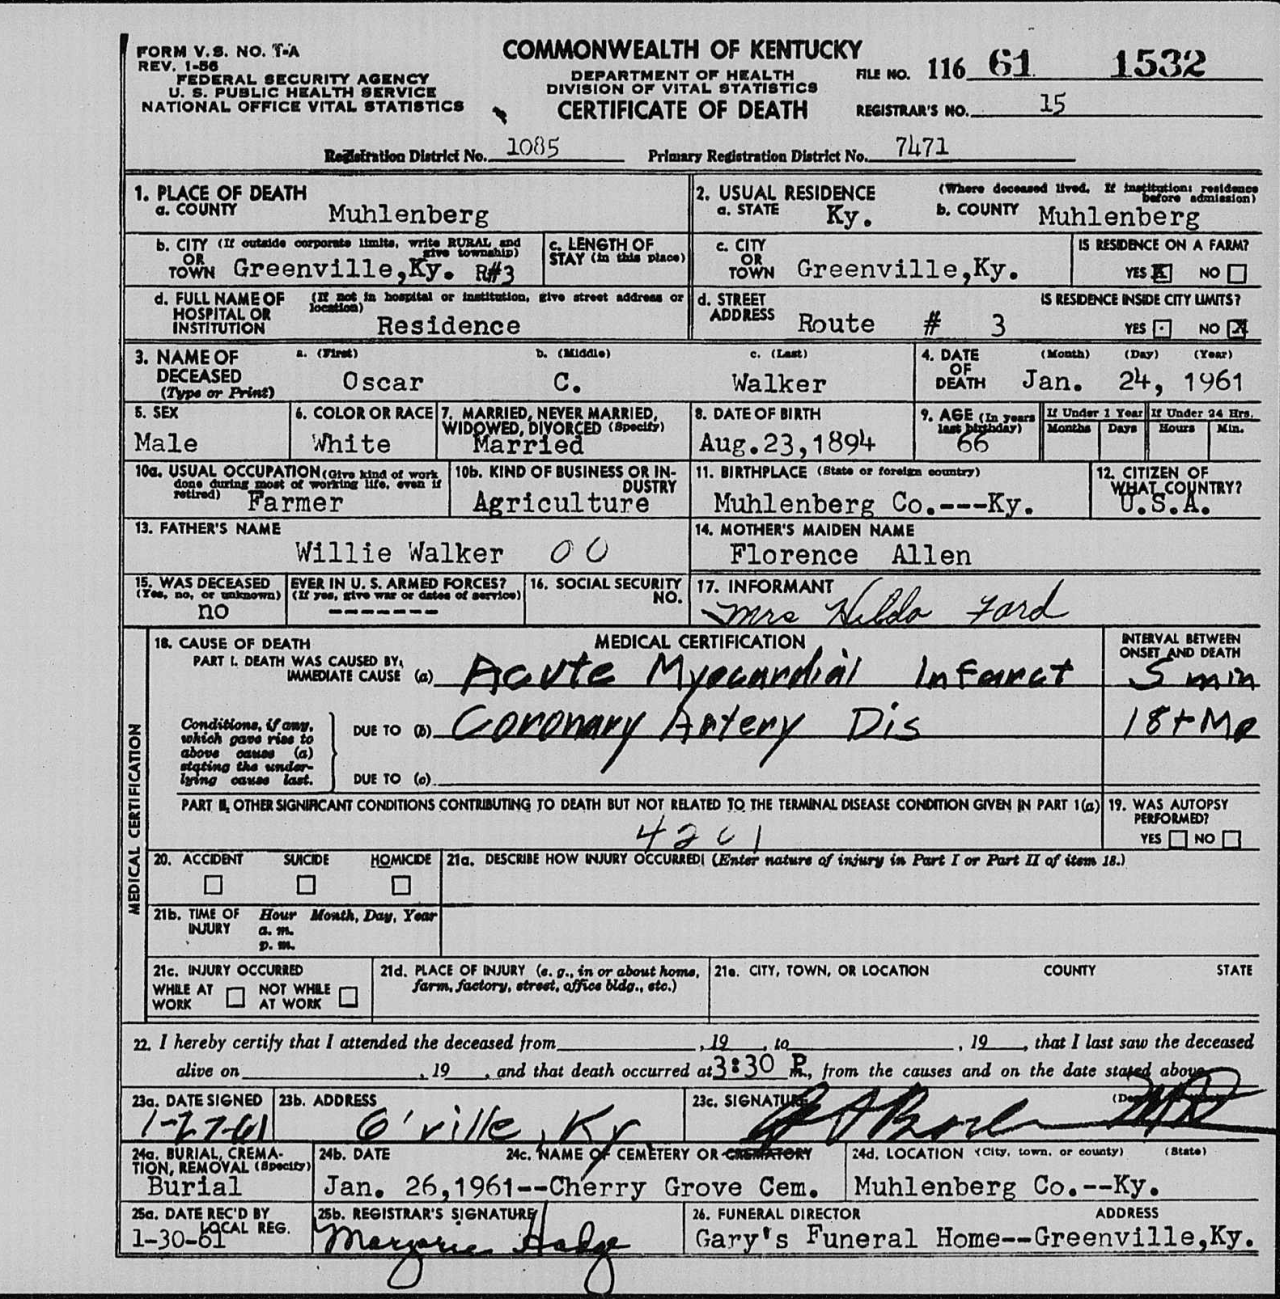 FORM V.S. NO. 1-A
REV. 1-56
FEDERAL SECURITY AGENCY
U. S. PUBLIC HEALTH SERVICE
NATIONAL OFFICE VITAL STATISTICS
COMMONWEALTH OF KENTUCKY
DEPARTMENT OF HEALTH
DIVISION OF VITAL STATISTICS
CERTIFICATE OF DEATH
FILE NO. 116 61 1532
REGISTRAR'S NO. 15
Registration District No. 1085 Primary Registration District No. 7471
1. PLACE OF DEATH
a. COUNTY Muhlenberg
2. USUAL RESIDENCE (Where deceased lived. If institution: residence before admission)
a. STATE Ky. b. COUNTY Muhlenberg
b. CITY (If outside corporate limits, write RURAL and give township)
OR
TOWN Greenville,Ky. R#3
c. LENGTH OF
STAY (in this place)
c. CITY
OR
TOWN Greenville,Ky.
IS RESIDENCE ON A FARM?
YES X NO
d. FULL NAME OF (If not in hospital or institution, give street address or location)
HOSPITAL OR
INSTITUTION Residence
d. STREET
ADDRESS Route # 3
IS RESIDENCE INSIDE CITY LIMITS?
YES NO X
3. NAME OF
DECEASED
(Type or Print)
a. (First) b. (Middle) c. (Last)
Oscar C. Walker
4. DATE
OF
DEATH
(Month) (Day) (Year)
Jan. 24, 1961
5. SEX
Male
6. COLOR OR RACE
White
7. MARRIED, NEVER MARRIED,
WIDOWED, DIVORCED (Specify)
Married
8. DATE OF BIRTH
Aug.23,1894
9. AGE (In years
last birthday)
66
If Under 1 Year
Months Days
If Under 24 Hrs.
Hours Min.
10a. USUAL OCCUPATION (Give kind of work
done during most of working life, even if
retired) Farmer
10b. KIND OF BUSINESS OR IN-
DUSTRY
Agriculture
11. BIRTHPLACE (State or foreign country)
Muhlenberg Co.---Ky.
12. CITIZEN OF
WHAT COUNTRY?
U.S.A.
13. FATHER'S NAME
Willie Walker 00
14. MOTHER'S MAIDEN NAME
Florence Allen
15. WAS DECEASED EVER IN U. S. ARMED FORCES?
(Yes, no, or unknown) (If yes, give war or dates of service)
no -------
16. SOCIAL SECURITY
NO.
17. INFORMANT
Mrs Hilda Ford
MEDICAL CERTIFICATION
18. CAUSE OF DEATH
MEDICAL CERTIFICATION
INTERVAL BETWEEN
ONSET AND DEATH
PART I. DEATH WAS CAUSED BY:
IMMEDIATE CAUSE (a) Acute Myocardial Infarct 5 min
Conditions, if any,
which gave rise to
above cause (a)
stating the under-
lying cause last.
DUE TO (b) Coronary Artery Dis 18+ Mo
DUE TO (c)
PART II. OTHER SIGNIFICANT CONDITIONS CONTRIBUTING TO DEATH BUT NOT RELATED TO THE TERMINAL DISEASE CONDITION GIVEN IN PART 1(a)
4201
19. WAS AUTOPSY
PERFORMED?
YES NO
20. ACCIDENT SUICIDE HOMICIDE
21a. DESCRIBE HOW INJURY OCCURRED: (Enter nature of injury in Part I or Part II of item 18.)
21b. TIME OF
INJURY
Hour Month, Day, Year
a. m.
p. m.
21c. INJURY OCCURRED
WHILE AT
WORK
NOT WHILE
AT WORK
21d. PLACE OF INJURY (e. g., in or about home,
farm, factory, street, office bldg., etc.)
21e. CITY, TOWN, OR LOCATION COUNTY STATE
22. I hereby certify that I attended the deceased from , 19 , to , 19 , that I last saw the deceased
alive on , 19 , and that death occurred at 3:30 P m., from the causes and on the date stated above.
23a. DATE SIGNED
1-27-61
23b. ADDRESS
G'ville, Ky
23c. SIGNATURE
MD
24a. BURIAL, CREMA-
TION, REMOVAL (Specify)
Burial
24b. DATE
Jan. 26,1961--
24c. NAME OF CEMETERY OR CREMATORY
Cherry Grove Cem.
24d. LOCATION (City, town, or county) (State)
Muhlenberg Co.--Ky.
25a. DATE REC'D BY
LOCAL REG.
1-30-61
25b. REGISTRAR'S SIGNATURE
Marjorie Hadge
26. FUNERAL DIRECTOR ADDRESS
Gary's Funeral Home--Greenville,Ky.